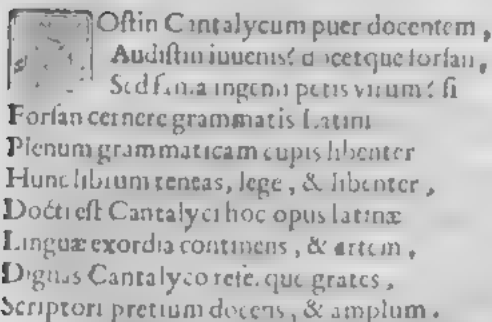 Ostin Cantalycum puer docentem,
Audistin iuuenis? docetque forsan,
Sed fama ingenii petis virum? si
Forsan cernere grammatis Latini
Plenum grammaticam cupis libenter
Hunc librum teneas, lege, & libenter,
Docti est Cantalyci hoc opus latinæ
Linguæ exordia continens, & artem,
Dignas Cantalyco refe. que grates,
Scriptori pretium docens, & amplum.